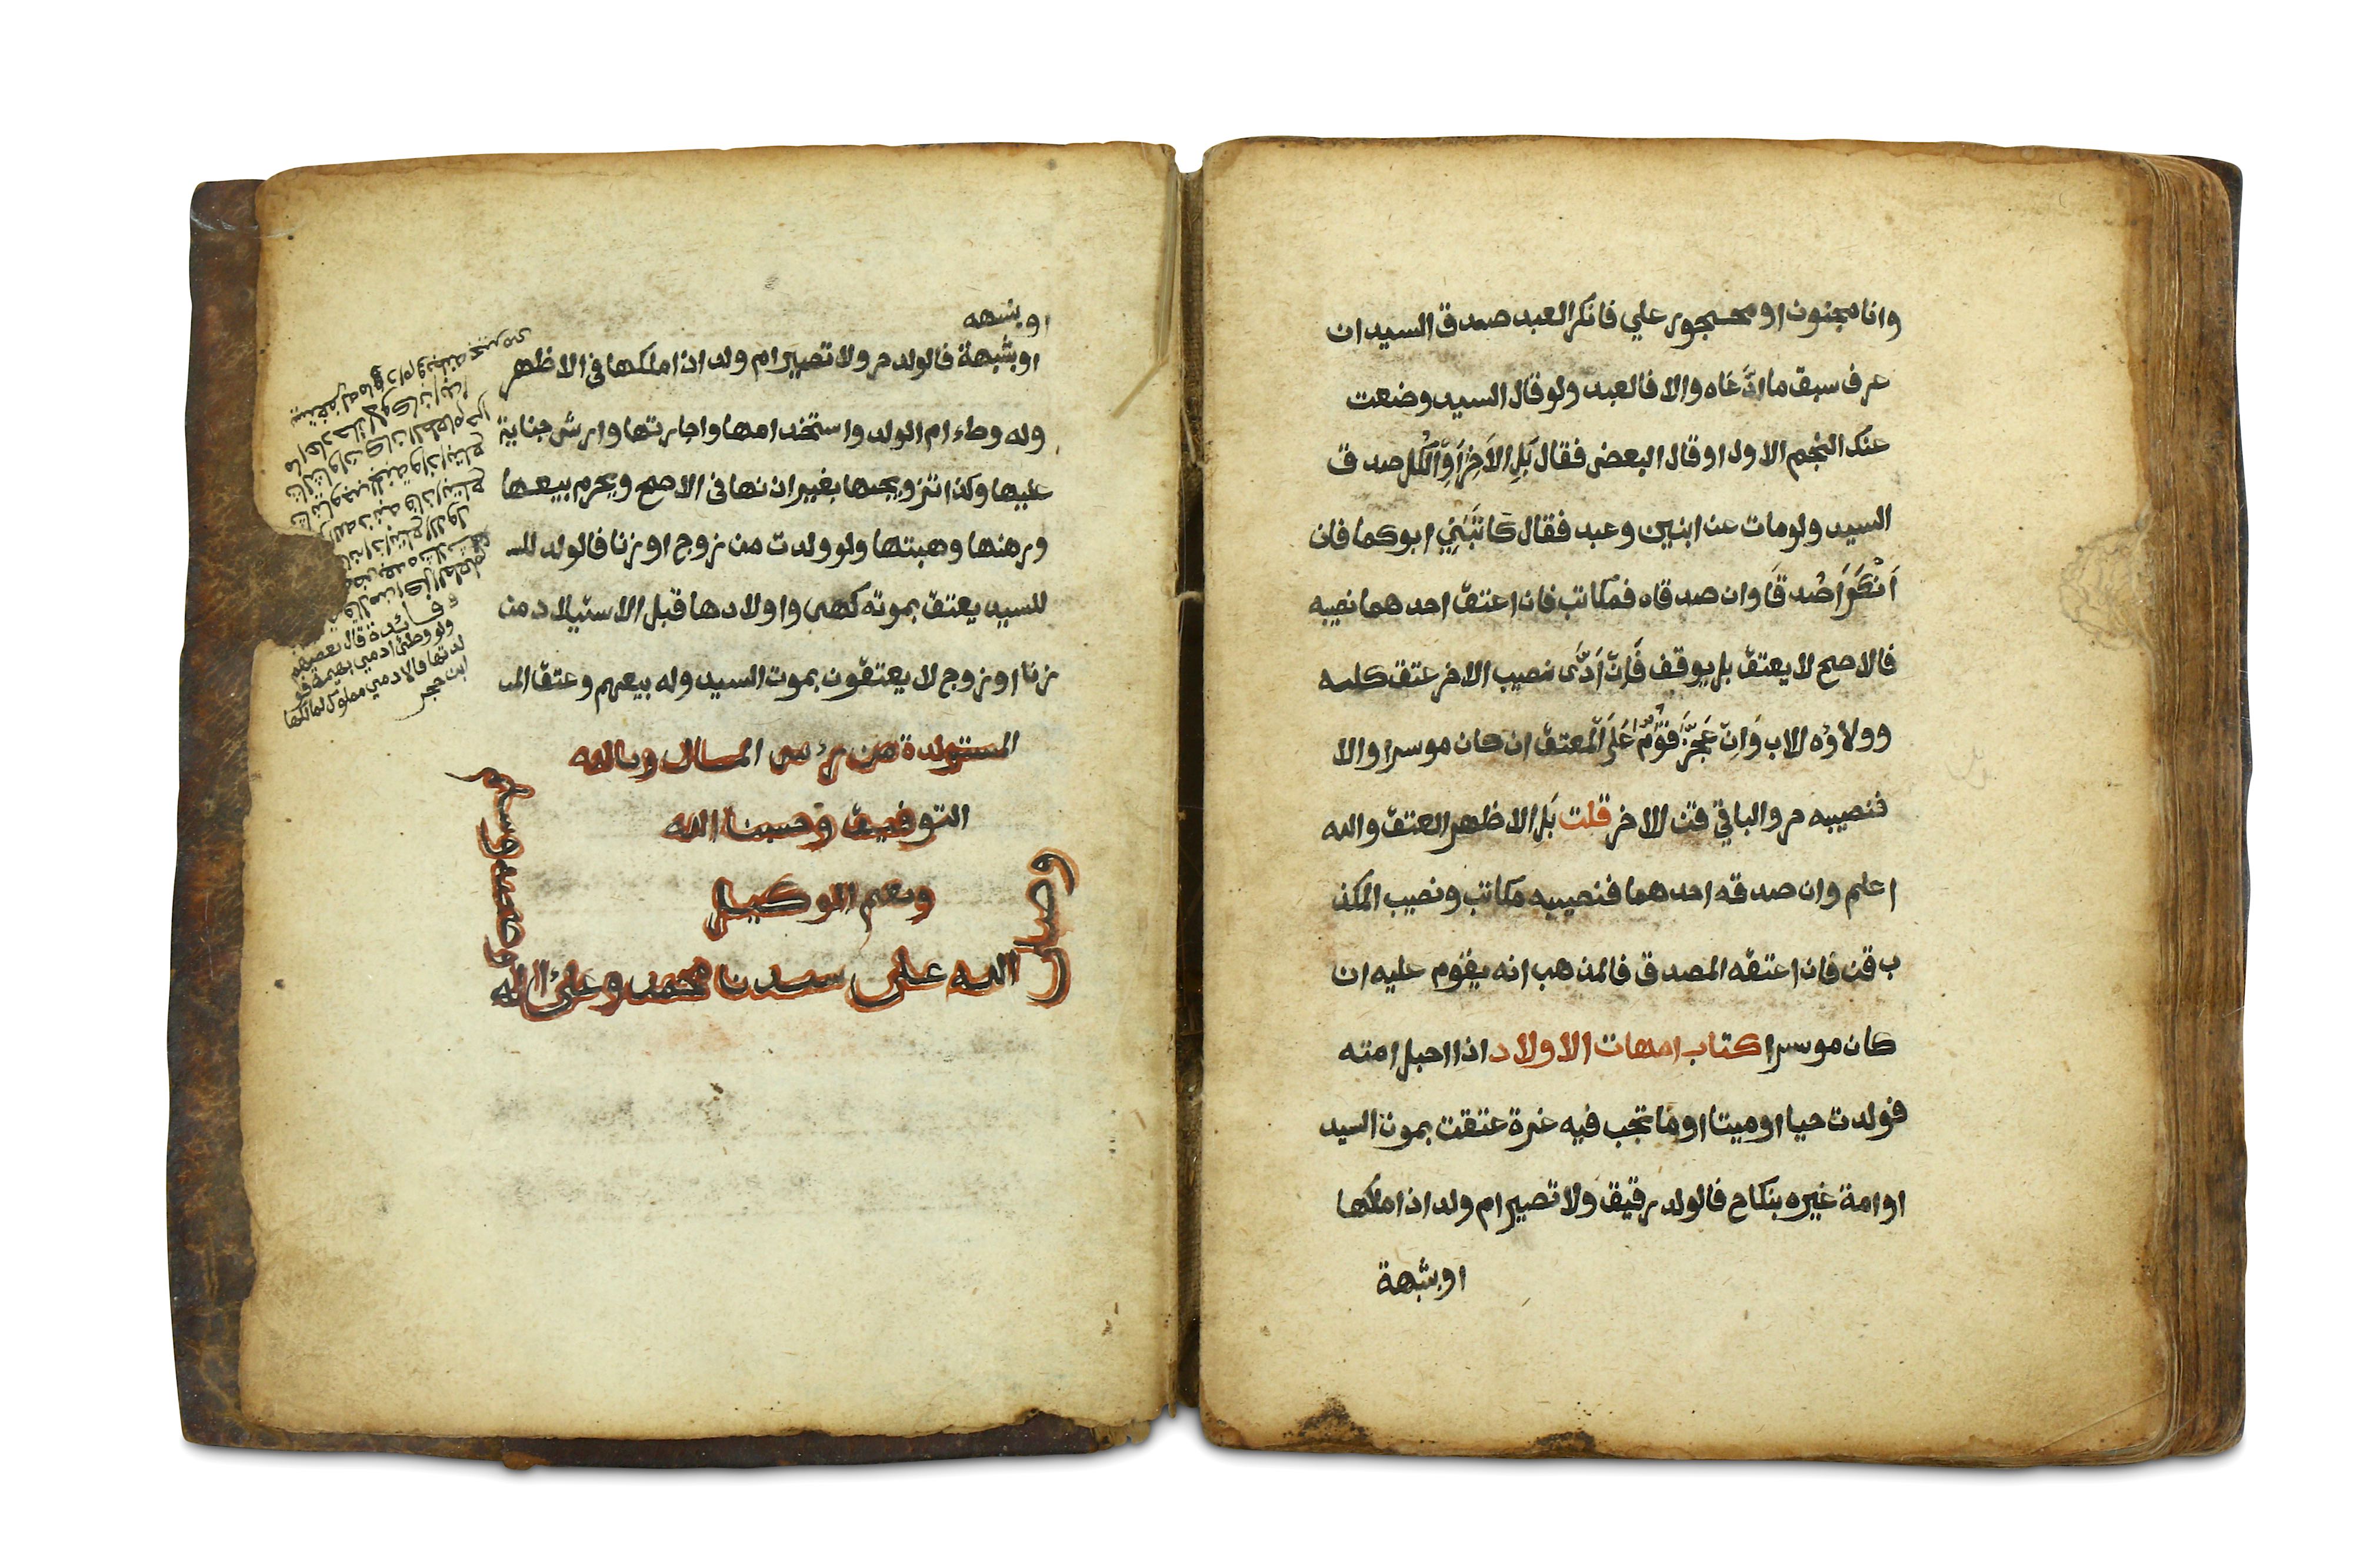 وانا مجنون او محسجور علي فانكر العبد صدق السيد ان
عرف سبق ما ادَّعاه والا فالعبد ولو قال السيد وضعت
عنك النجم الاول او قال البعض فقال بَلِ الاَخِرَ اَوِ الْكُل صدق
السيد ولو مات عن ابنين وعبد فقال كَاتَبَنِي ابوكما فان
اَنْكَرَا صُدقَا وان صدقاه فمكاتب فان اعتق احدهما نصيبه
فالاصح لا يعتق بل يوقف فَاِنْ اَدَّى نصيب الاخر عتق كله
وولاؤه للاب وَاِنْ عَجَزَ قُوِّمَ عَلَى الْمعتق ان كان موسرا والا
فنصيبه حر والباقي قن للاخر قلت بَل الاظهر العتق والله
اعلم وان صدقه احدهما فنصيبه مكاتب ونصيب المكذ
ب قن فان اعتقه المصدق فالمذهب انه يقوم عليه ان
كان موسرا كتاب امهات الاولاد اذا احبل امته
فولدت حيا او ميتا او ما تجب فيه غرة عتقت بموت السيد
او امة غيره بنكاح فالولد رقيق ولا تصير ام ولد اذا ملكها
او بشبهة
او بشبهه
او بشبهة فالولد حر ولا تصير ام ولد اذا ملكها في الاظهر
وله وطء ام الولد واستخدامها واجارتها وارش جناية
عليها وكذا تزويجها بغير اذنها في الاصح ويحرم بيعها
ورهنها وهبتها ولو ولدت من زوج او زنا فالولد للسـ
للسيد يعتق بموته كهي واولادها قبل الاستيلاد من
زنا او زوج لا يعتقون بموت السيد وله بيعهم وعتق المـ
المستولدة من رءس المال وبالله
التوفيق وحسبنا الله
ونعم الوكيل
وصلى
الله على سيدنا محمد وعلى اله
وصحبه وسلم
قال بعضهم
ولو وطئ ادمي بهيمة فو
لدتها فالادمي مملوك لمالكها
ابن حجر